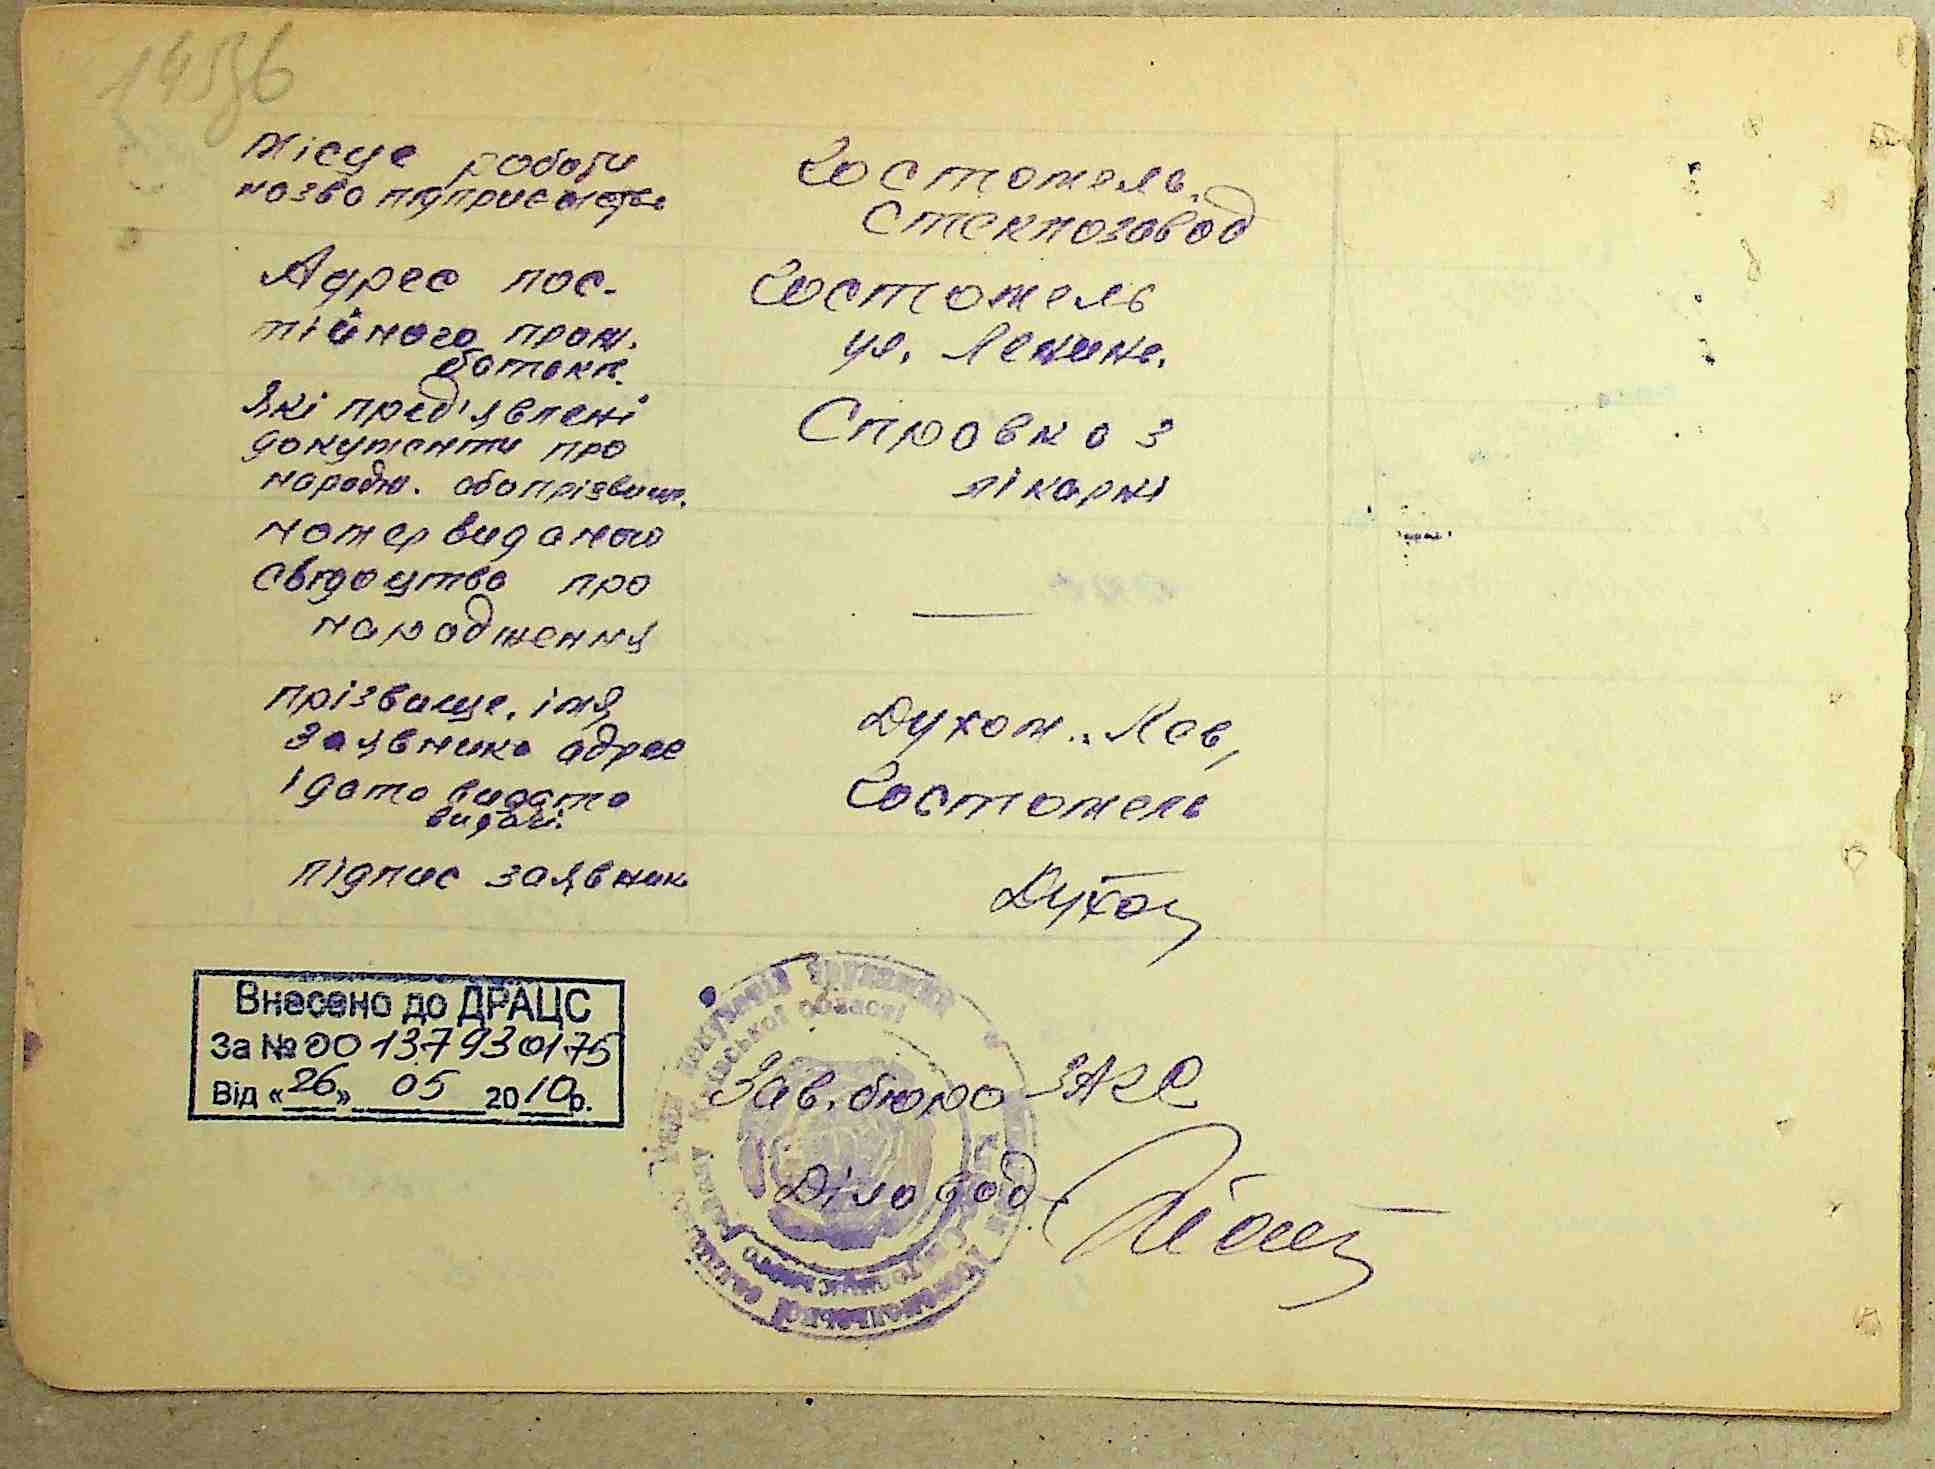 Місце роботи
назва підприємства
Гостомель.
Стеклозавод
Адрес пос-
тійного прож.
батьків.
Гостомель
ул. Ленина.
Які пред'явлені
документи про
народж. або прізвищ.
Справка з
лікарні
номер виданого
свідоцтва про
народження
—
прізвище, імя
заявника адрес
і дата видачі.
Духон. Лев,
Гостомель
підпис заявник
Духон
Внесено до ДРАЦС
За № 00137930175
Від «26» 05 2010р.
Зав. бюро ЗАГС
Діловод